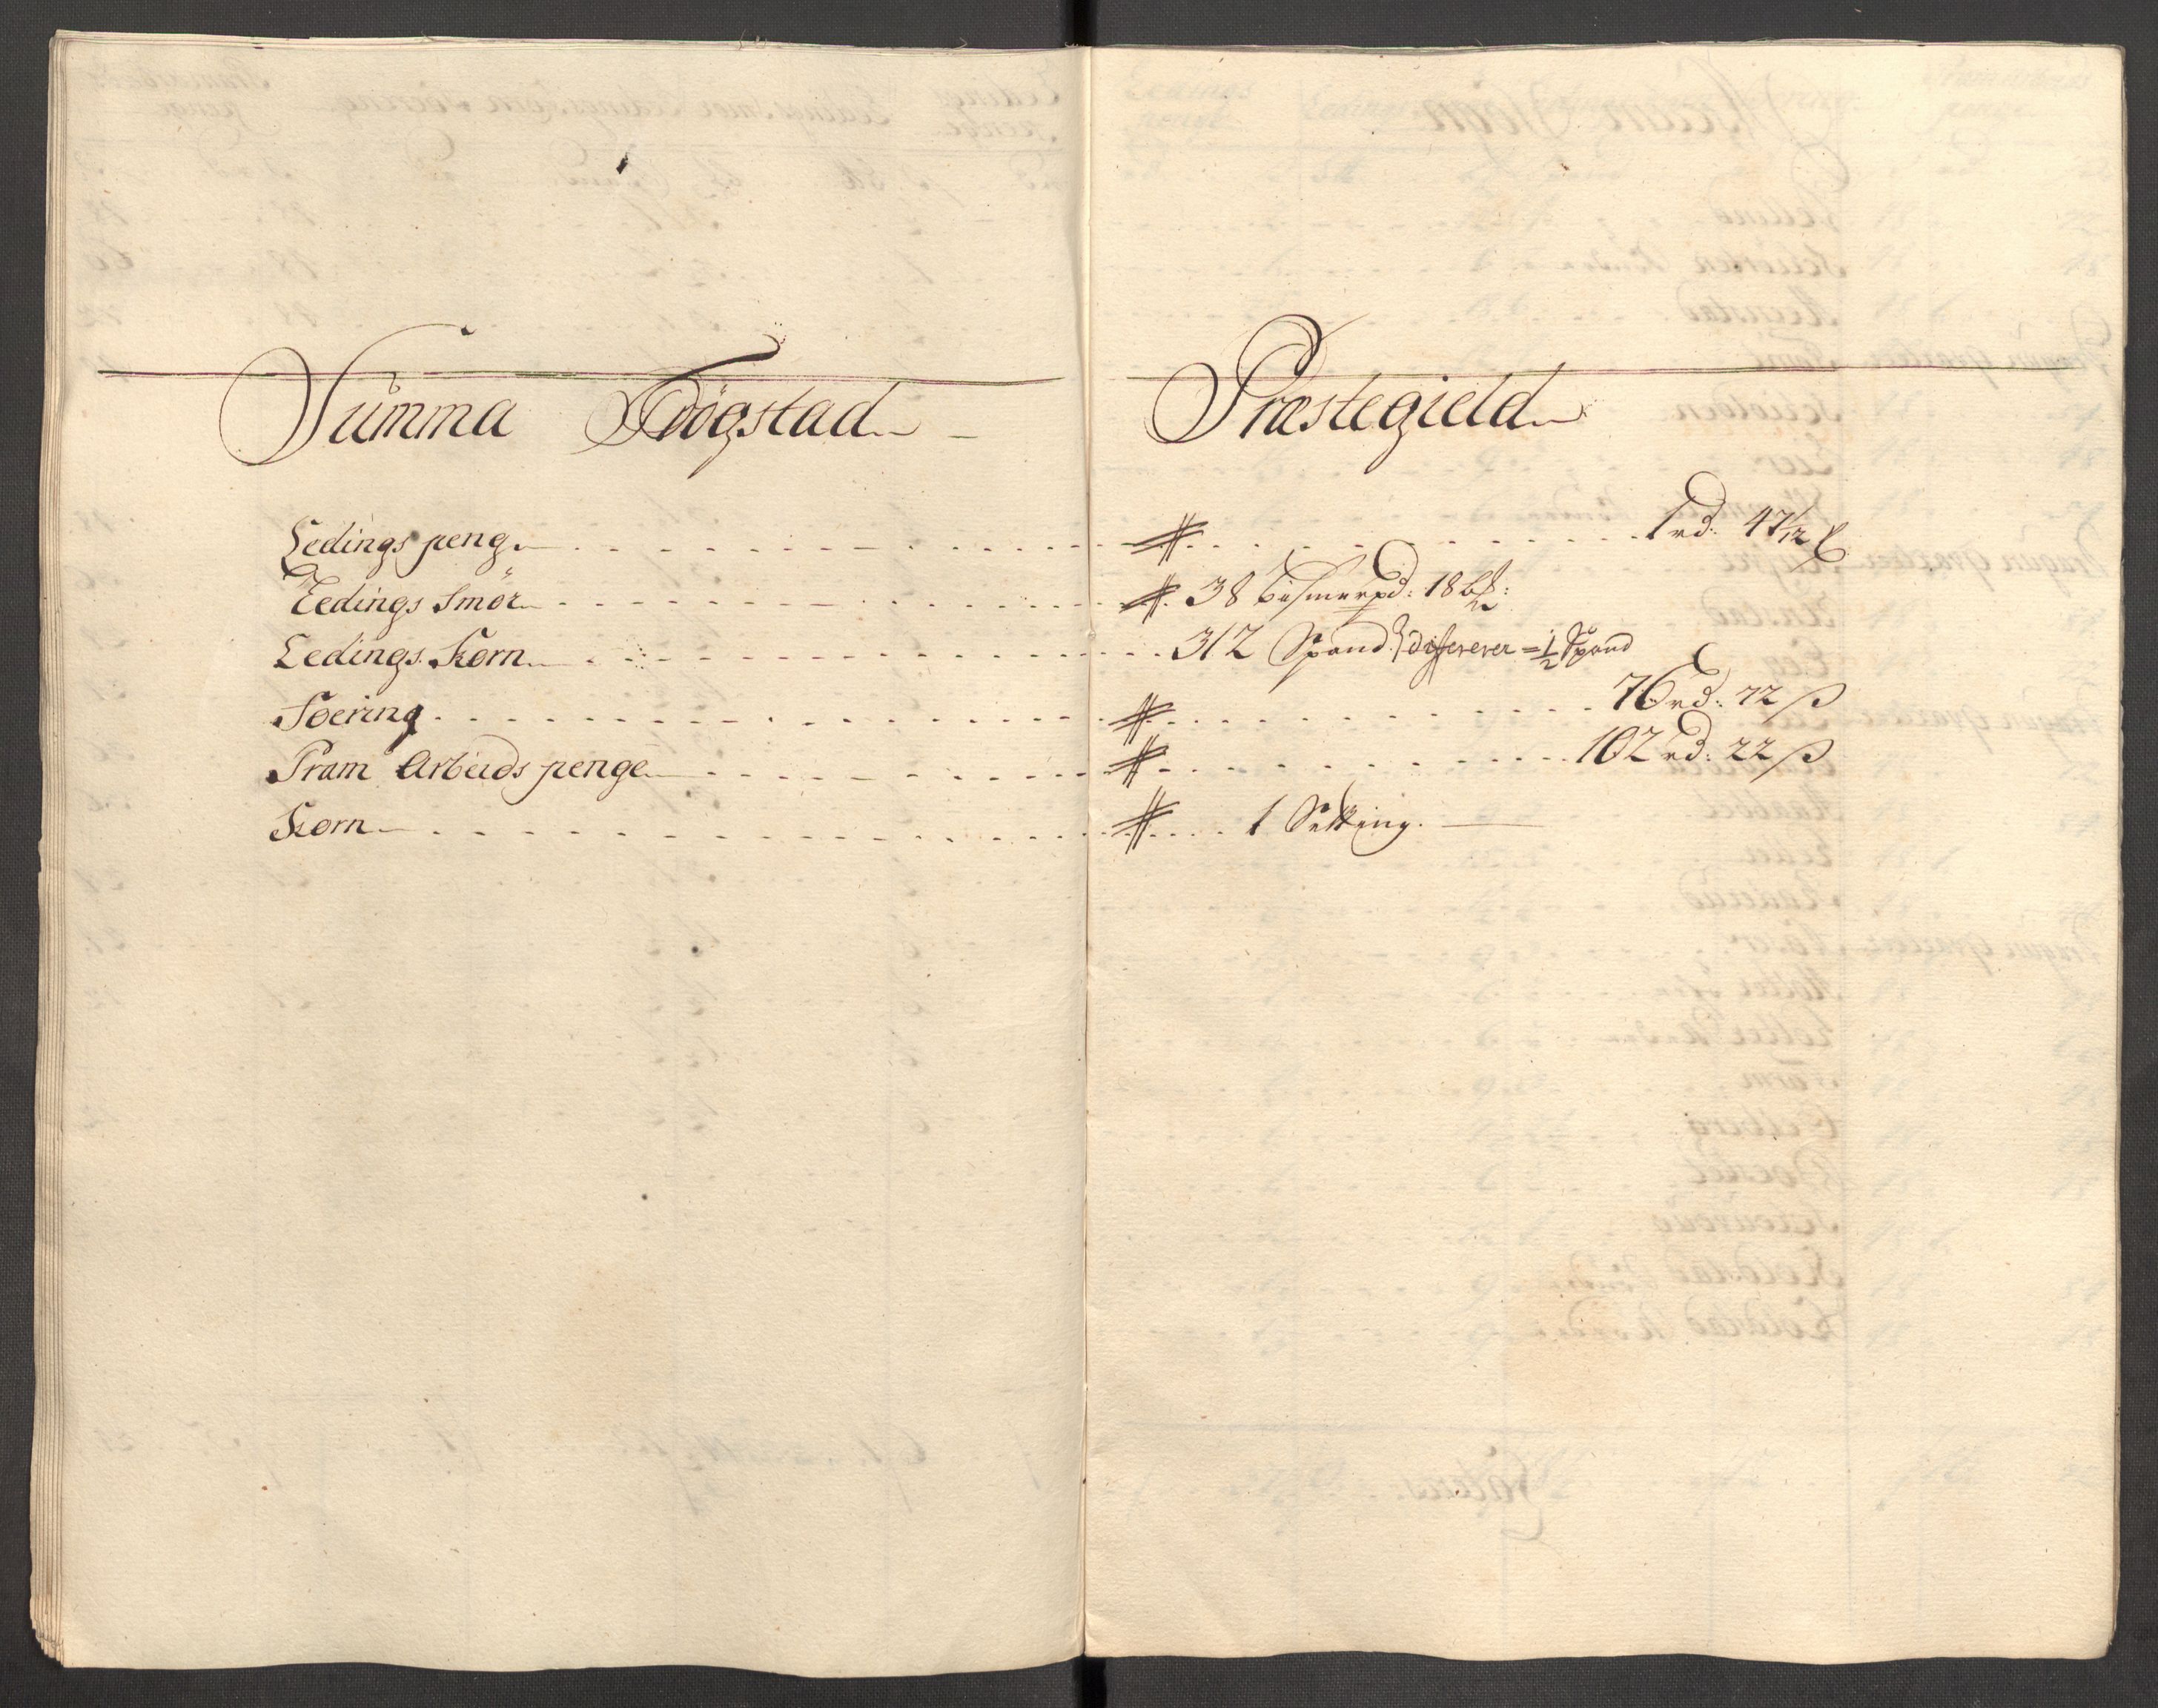 Summa Trögstad Præstegield
Ledings peng . . . # . . . 1 rd: 47 1/2 ß
Ledings Smör . . . # 38 bismerpd: 18 b#:
Ledings Korn . . . 312 Spand differerer = 1/2 Spand
Foering . . . # . . . 76 rd: 72 ß
Pram Arbeids penge . . . # . . . 102 rd: 22 ß
Korn . . . # . . . 1 Setting.